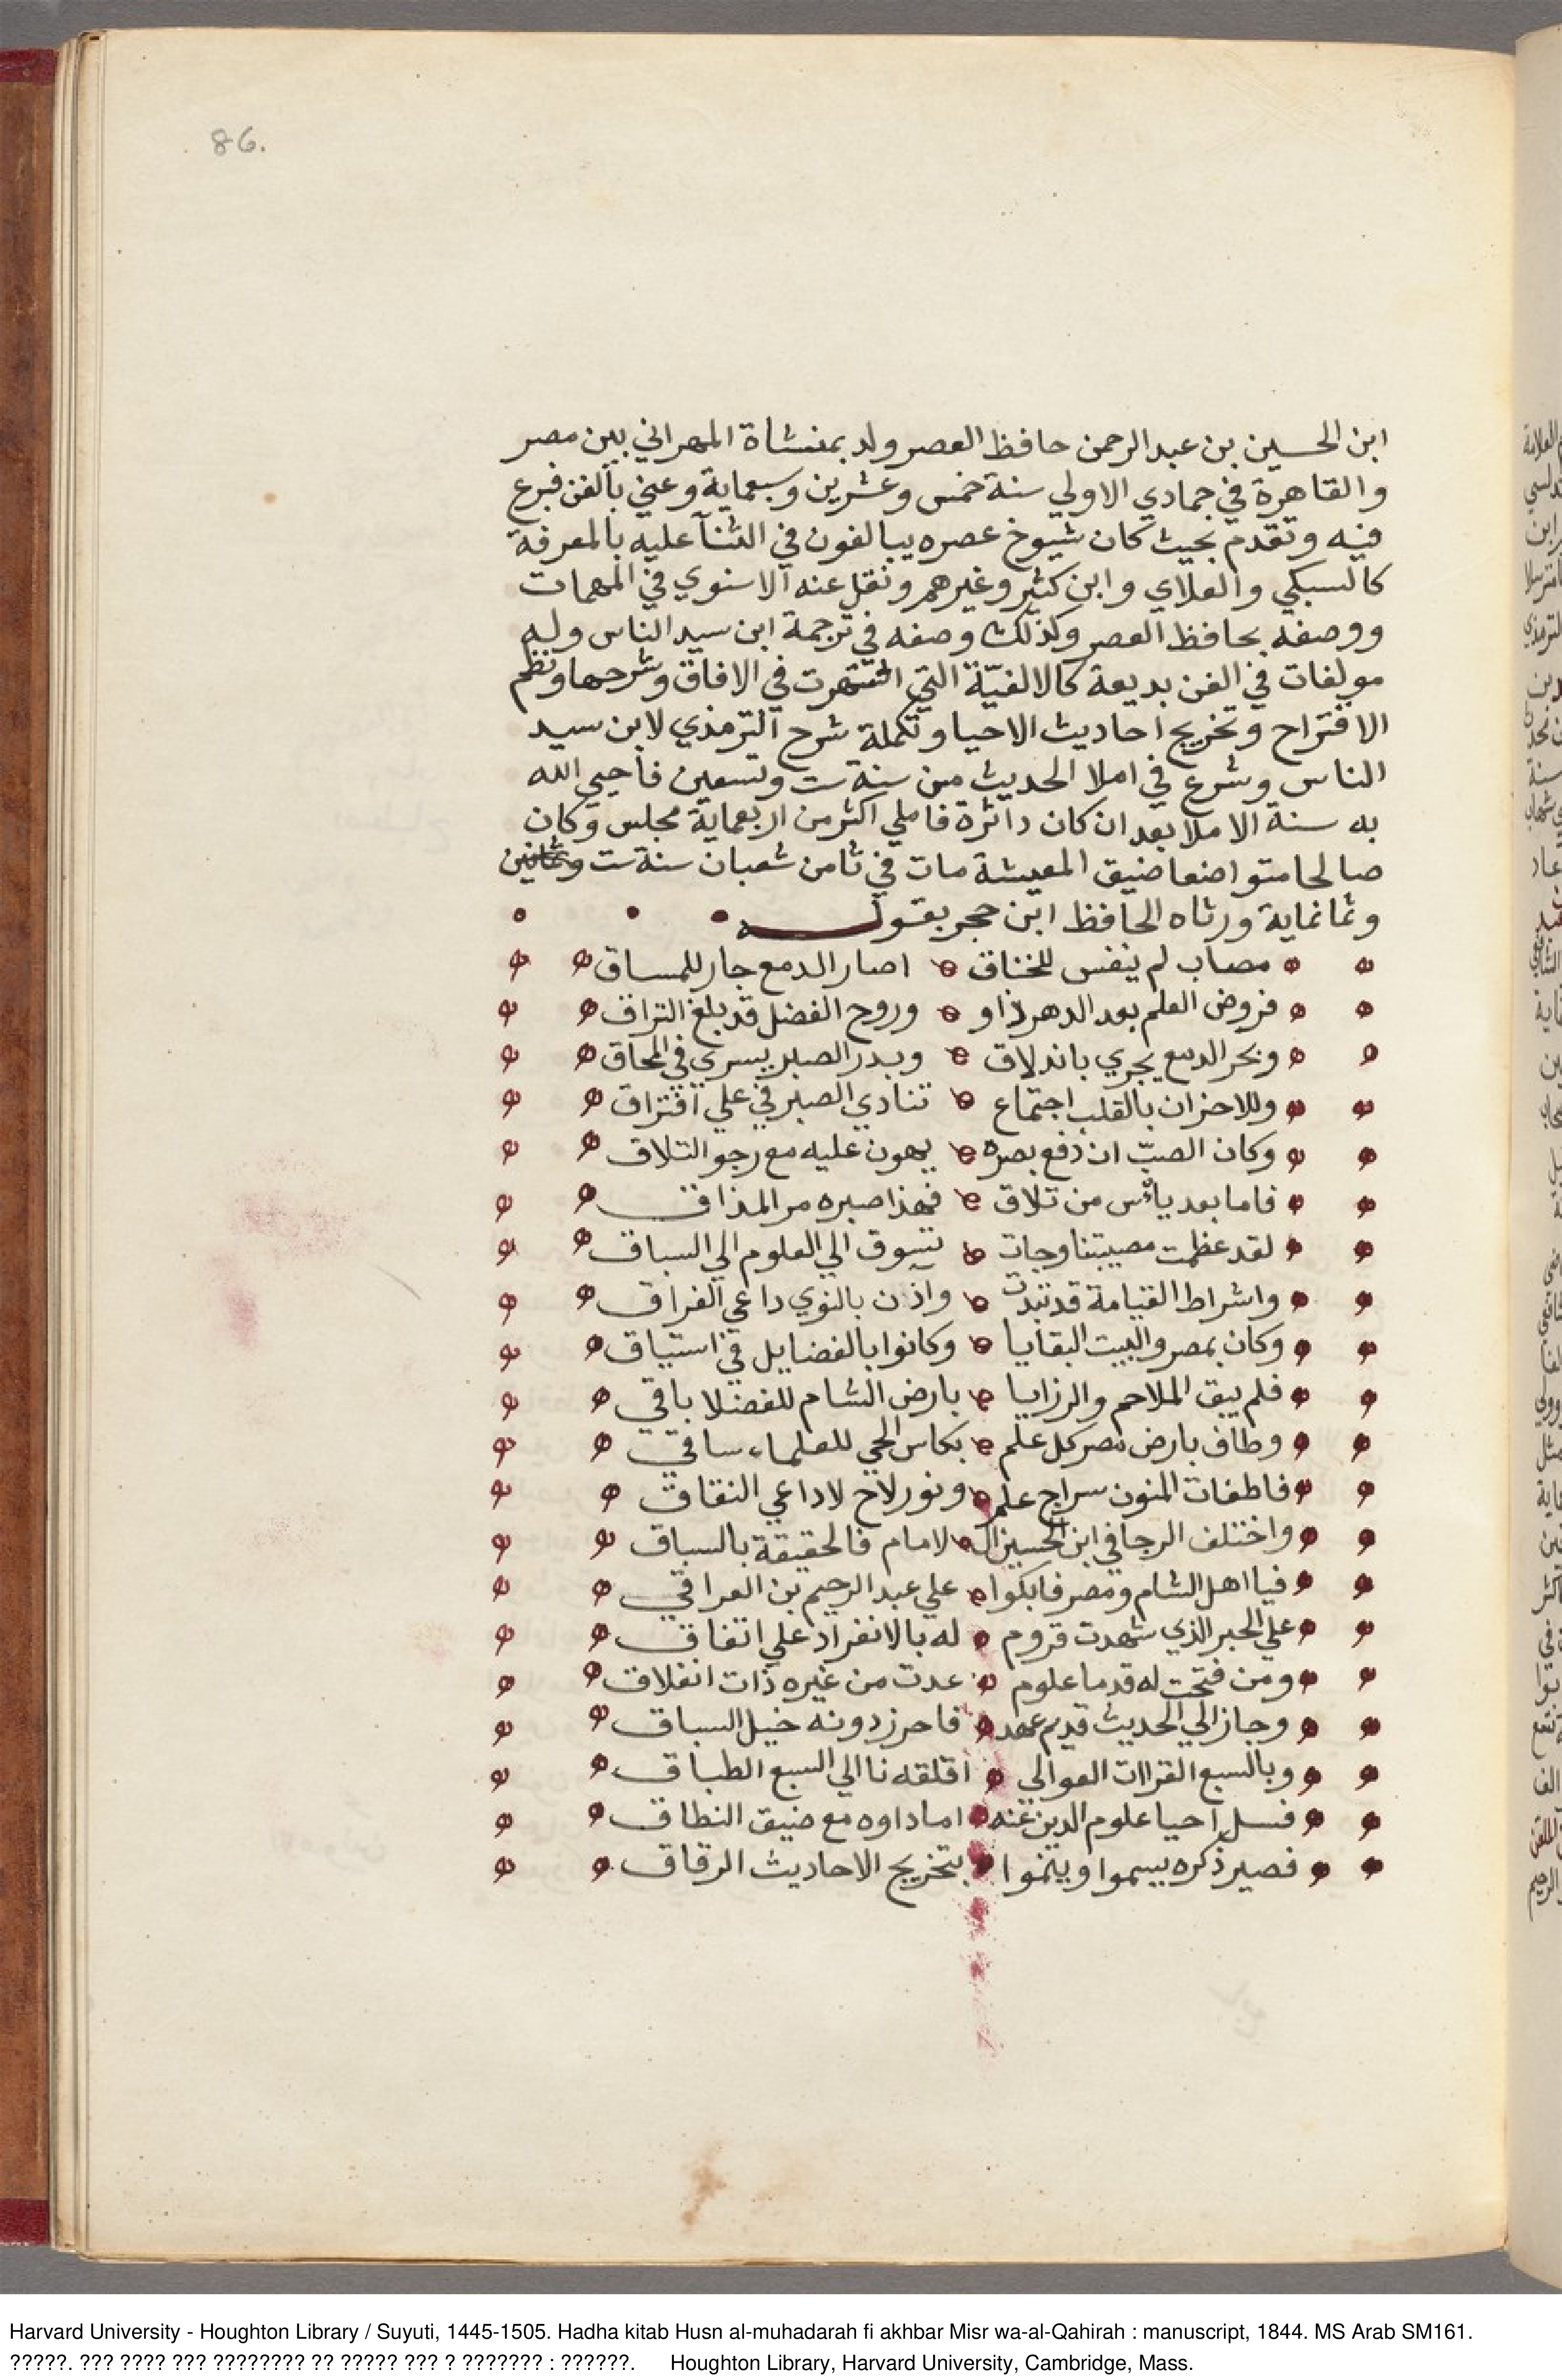 86.
ابن الحسين بن عبد الرحمن حافظ العصر ولد بمنشاة المهراني بين مصر
والقاهرة في جمادي الاولي سنة خمس وعشرين وسبعماية وعني بالفن فبرع
فيه وتقدم بحيث كان شيوخ عصره يبالغون في الثنآ عليه بالمعرفة
كالسبكي والعلاي وابن كثير وغيرهم ونقل عنه الاسنوي في المهمات
ووصفه بحافظ العصر وكذلك وصفه في ترجمة ابن سيد الناس وله
مولفات في الفن بديعة كالالفيّة التي اشتهرت في الافاق وشرحها ونظم
الاقتراح وتخريج احاديث الاحيا وتكملة شرح الترمذي لابن سيد
الناس وشرع في املا الحديث من سنة ست وتسعين فاحيي الله
به سنة الاملا بعد ان كان دائرة فاملي اكثر من اربعماية مجلس وكان
صالحا متواضعا ضيق المعيشة مات في ثامن شعبان سنة ست
وثمانماية ورثاه الحافظ ابن حجر بقوله
مصاب لم ينفس للخناق اصار الدمع جار للمساق
فروض العلم بعد الدهر ذاو وروح الفضل قد بلغ التراق
وبحر الدمع يجري باندلاق وبدر الصبر يسري في المحاق
وللاحزان بالقلب اجتماع تنادي الصبر في علي افتراق
وكان الصبّ ان دفع بصره يهون عليه مع رجو التلاق
فاما بعد يائس من تلاق فهذا صبره مر المذاق
لقد عظمت مصيبتنا وجات تسوق الي العلوم الي السباق
واشراط القيامة قد تبدت واذن بالنوي داعي الفراق
وكان بمصر والبيت البقايا وكانوا بالفضايل في استياق
فلم يبق الملاحم والرزايا بارض الشام للفضلا باقي
وطاف بارض مصر كل علم بكاس الحي للعلماء ساقي
فاطفات المنون سراج علم ونور لاح لاداعي النقاق
واختلف الرجا في ابن الحسين ال لامام فالحقيقة بالسباق
فيا اهل الشام ومصر فابكوا علي عبد الرحيم بن العراقي
علي الحبر الذي شهدت قروم له بالانفراد علي اتفاق
ومن فتحت له قدما علوم عدت من غيره ذات انفلاق
وجاز الي الحديث قديم عهد فاحرز دونه خيل السباق
وبالسبع القراات العوالي اقلقه نا الي السبع الطباق
فسل احيا علوم الدين عنه اما داوه مع ضيق النطاق
فصير ذكره يسموا وينموا بتخريج الاحاديث الرقاق
Harvard University - Houghton Library / Suyuti, 1445-1505. Hadha kitab Husn al-muhadarah fi akhbar Misr wa-al-Qahirah : manuscript, 1844. MS Arab SM161.
?????. ??? ???? ??? ???????? ?? ????? ??? ? ??????? : ??????. Houghton Library, Harvard University, Cambridge, Mass.